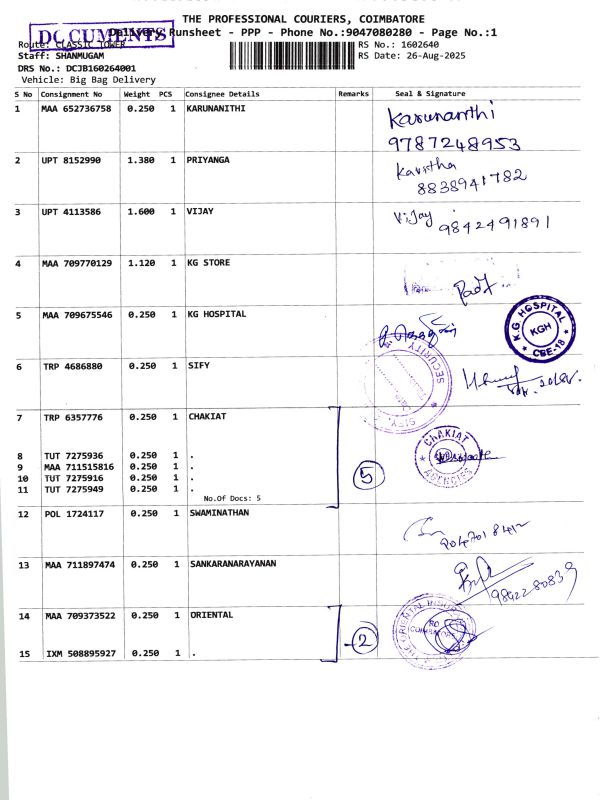 THE PROFESSIONAL COURIERS, COIMBATORE
DOCUMENTS
Delivery Runsheet - PPP - Phone No.:9047080280 - Page No.:1
Route: CLASSIC TOWER RS No.: 1602640
Staff: SHANMUGAM RS Date: 26-Aug-2025
DRS No.: DCJB160264001
Vehicle: Big Bag Delivery
S No Consignment No Weight PCS Consignee Details Remarks Seal & Signature
1 MAA 652736758 0.250 1 KARUNANITHI Karunanithi
9787248953
2 UPT 8152990 1.380 1 PRIYANGA Kavitha
8838941782
3 UPT 4113586 1.600 1 VIJAY Vijay 9842491891
4 MAA 709770129 1.120 1 KG STORE
5 MAA 709675546 0.250 1 KG HOSPITAL K.G. HOSPITAL
KGH
CBE-18
6 TRP 4686880 0.250 1 SIFY SECURITY
SIFY
7 TRP 6357776 0.250 1 CHAKIAT CHAKIAT
AGENCIES
8 TUT 7275936 0.250 1 .
9 MAA 711515816 0.250 1 . 5
10 TUT 7275916 0.250 1 .
11 TUT 7275949 0.250 1 .
No.Of Docs: 5
12 POL 1724117 0.250 1 SWAMINATHAN
13 MAA 711897474 0.250 1 SANKARANARAYANAN
14 MAA 709373522 0.250 1 ORIENTAL THE ORIENTAL
RO
COIMBATORE
2
15 IXM 508895927 0.250 1 .